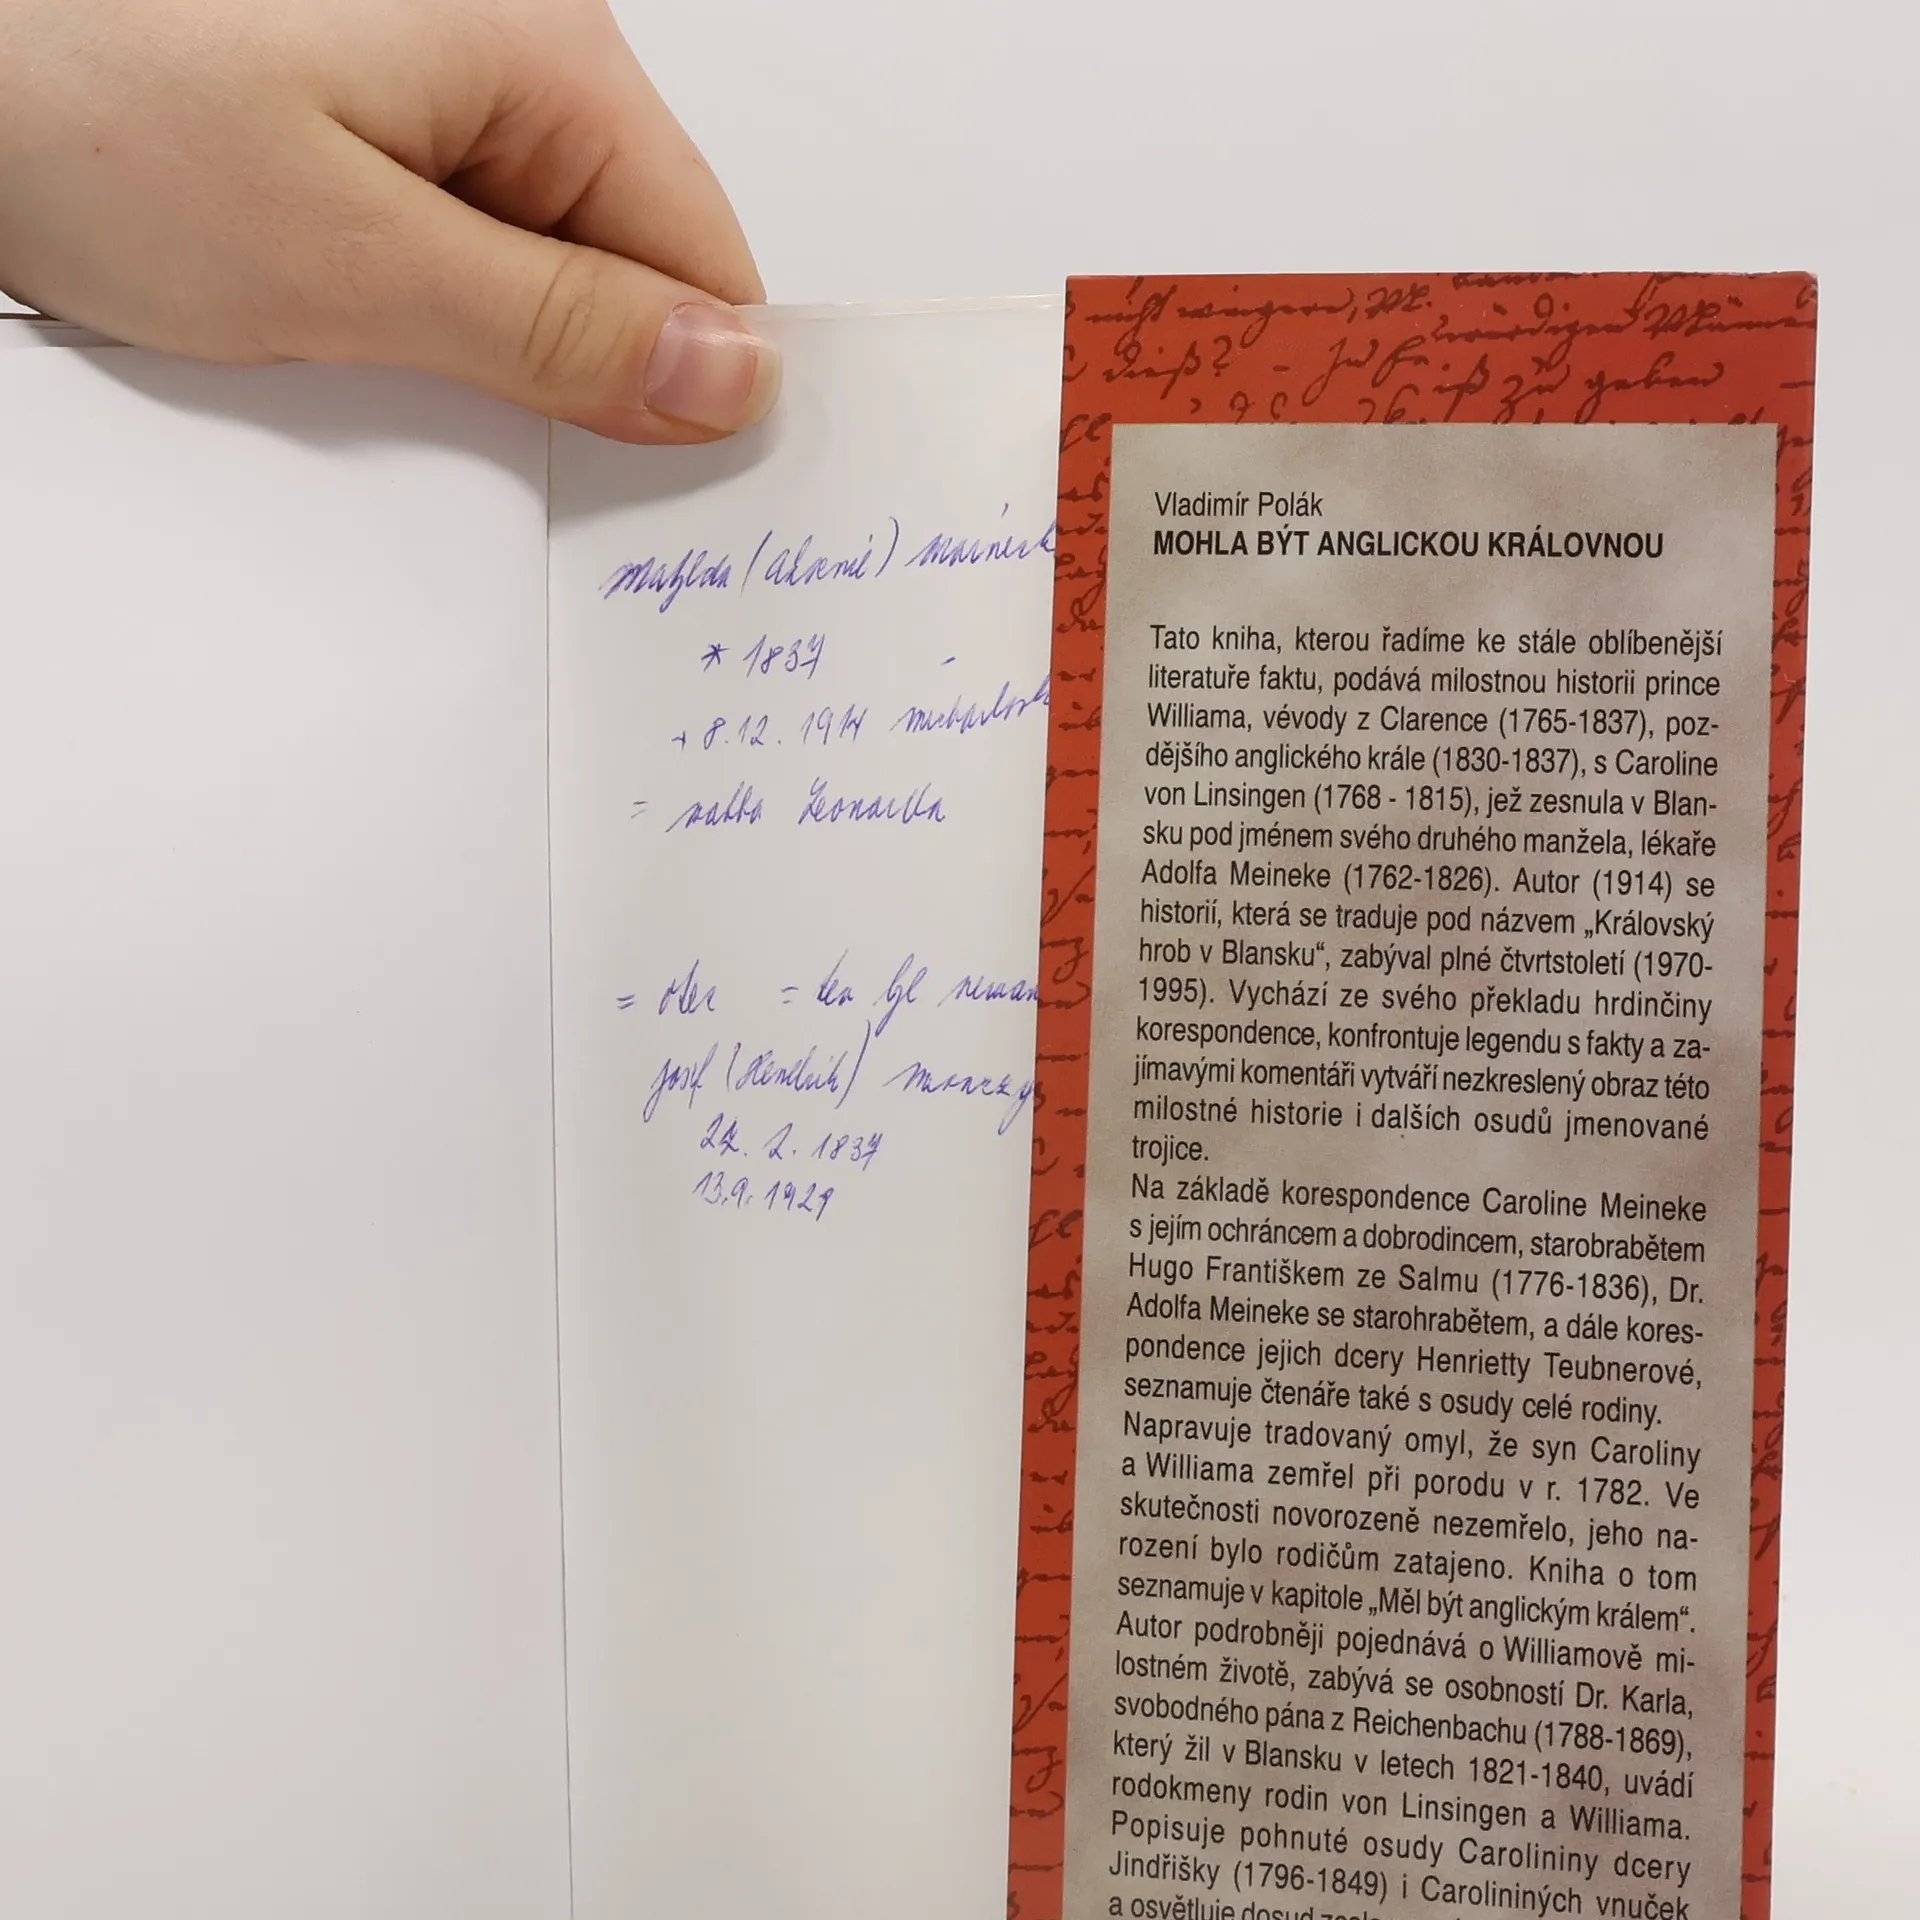 * 1837
8.12. 1914
= matka Leonarda
= otec = ten byl
Josef (Hendrik)
27. 2. 1837
13.9. 1929
dieß?
zu geben
Vladimír Polák
MOHLA BÝT ANGLICKOU KRÁLOVNOU
Tato kniha, kterou řadíme ke stále oblíbenější
literatuře faktu, podává milostnou historii prince
Williama, vévody z Clarence (1765-1837), poz-
dějšího anglického krále (1830-1837), s Caroline
von Linsingen (1768 - 1815), jež zesnula v Blan-
sku pod jménem svého druhého manžela, lékaře
Adolfa Meineke (1762-1826). Autor (1914) se
historií, která se traduje pod názvem „Královský
hrob v Blansku“, zabýval plné čtvrtstoletí (1970-
1995). Vychází ze svého překladu hrdinčiny
korespondence, konfrontuje legendu s fakty a za-
jímavými komentáři vytváří nezkreslený obraz této
milostné historie i dalších osudů jmenované
trojice.
Na základě korespondence Caroline Meineke
s jejím ochráncem a dobrodincem, starobrabětem
Hugo Františkem ze Salmu (1776-1836), Dr.
Adolfa Meineke se starohrabětem, a dále kores-
pondence jejich dcery Henrietty Teubnerové,
seznamuje čtenáře také s osudy celé rodiny.
Napravuje tradovaný omyl, že syn Caroliny
a Williama zemřel při porodu v r. 1782. Ve
skutečnosti novorozeně nezemřelo, jeho na-
rození bylo rodičům zatajeno. Kniha o tom
seznamuje v kapitole „Měl být anglickým králem“.
Autor podrobněji pojednává o Williamově mi-
lostném životě, zabývá se osobností Dr. Karla,
svobodného pána z Reichenbachu (1788-1869),
který žil v Blansku v letech 1821-1840, uvádí
rodokmeny rodin von Linsingen a Williama.
Popisuje pohnuté osudy Carolininy dcery
Jindřišky (1796-1849) i Carolininých vnuček
a osvětluje dosud